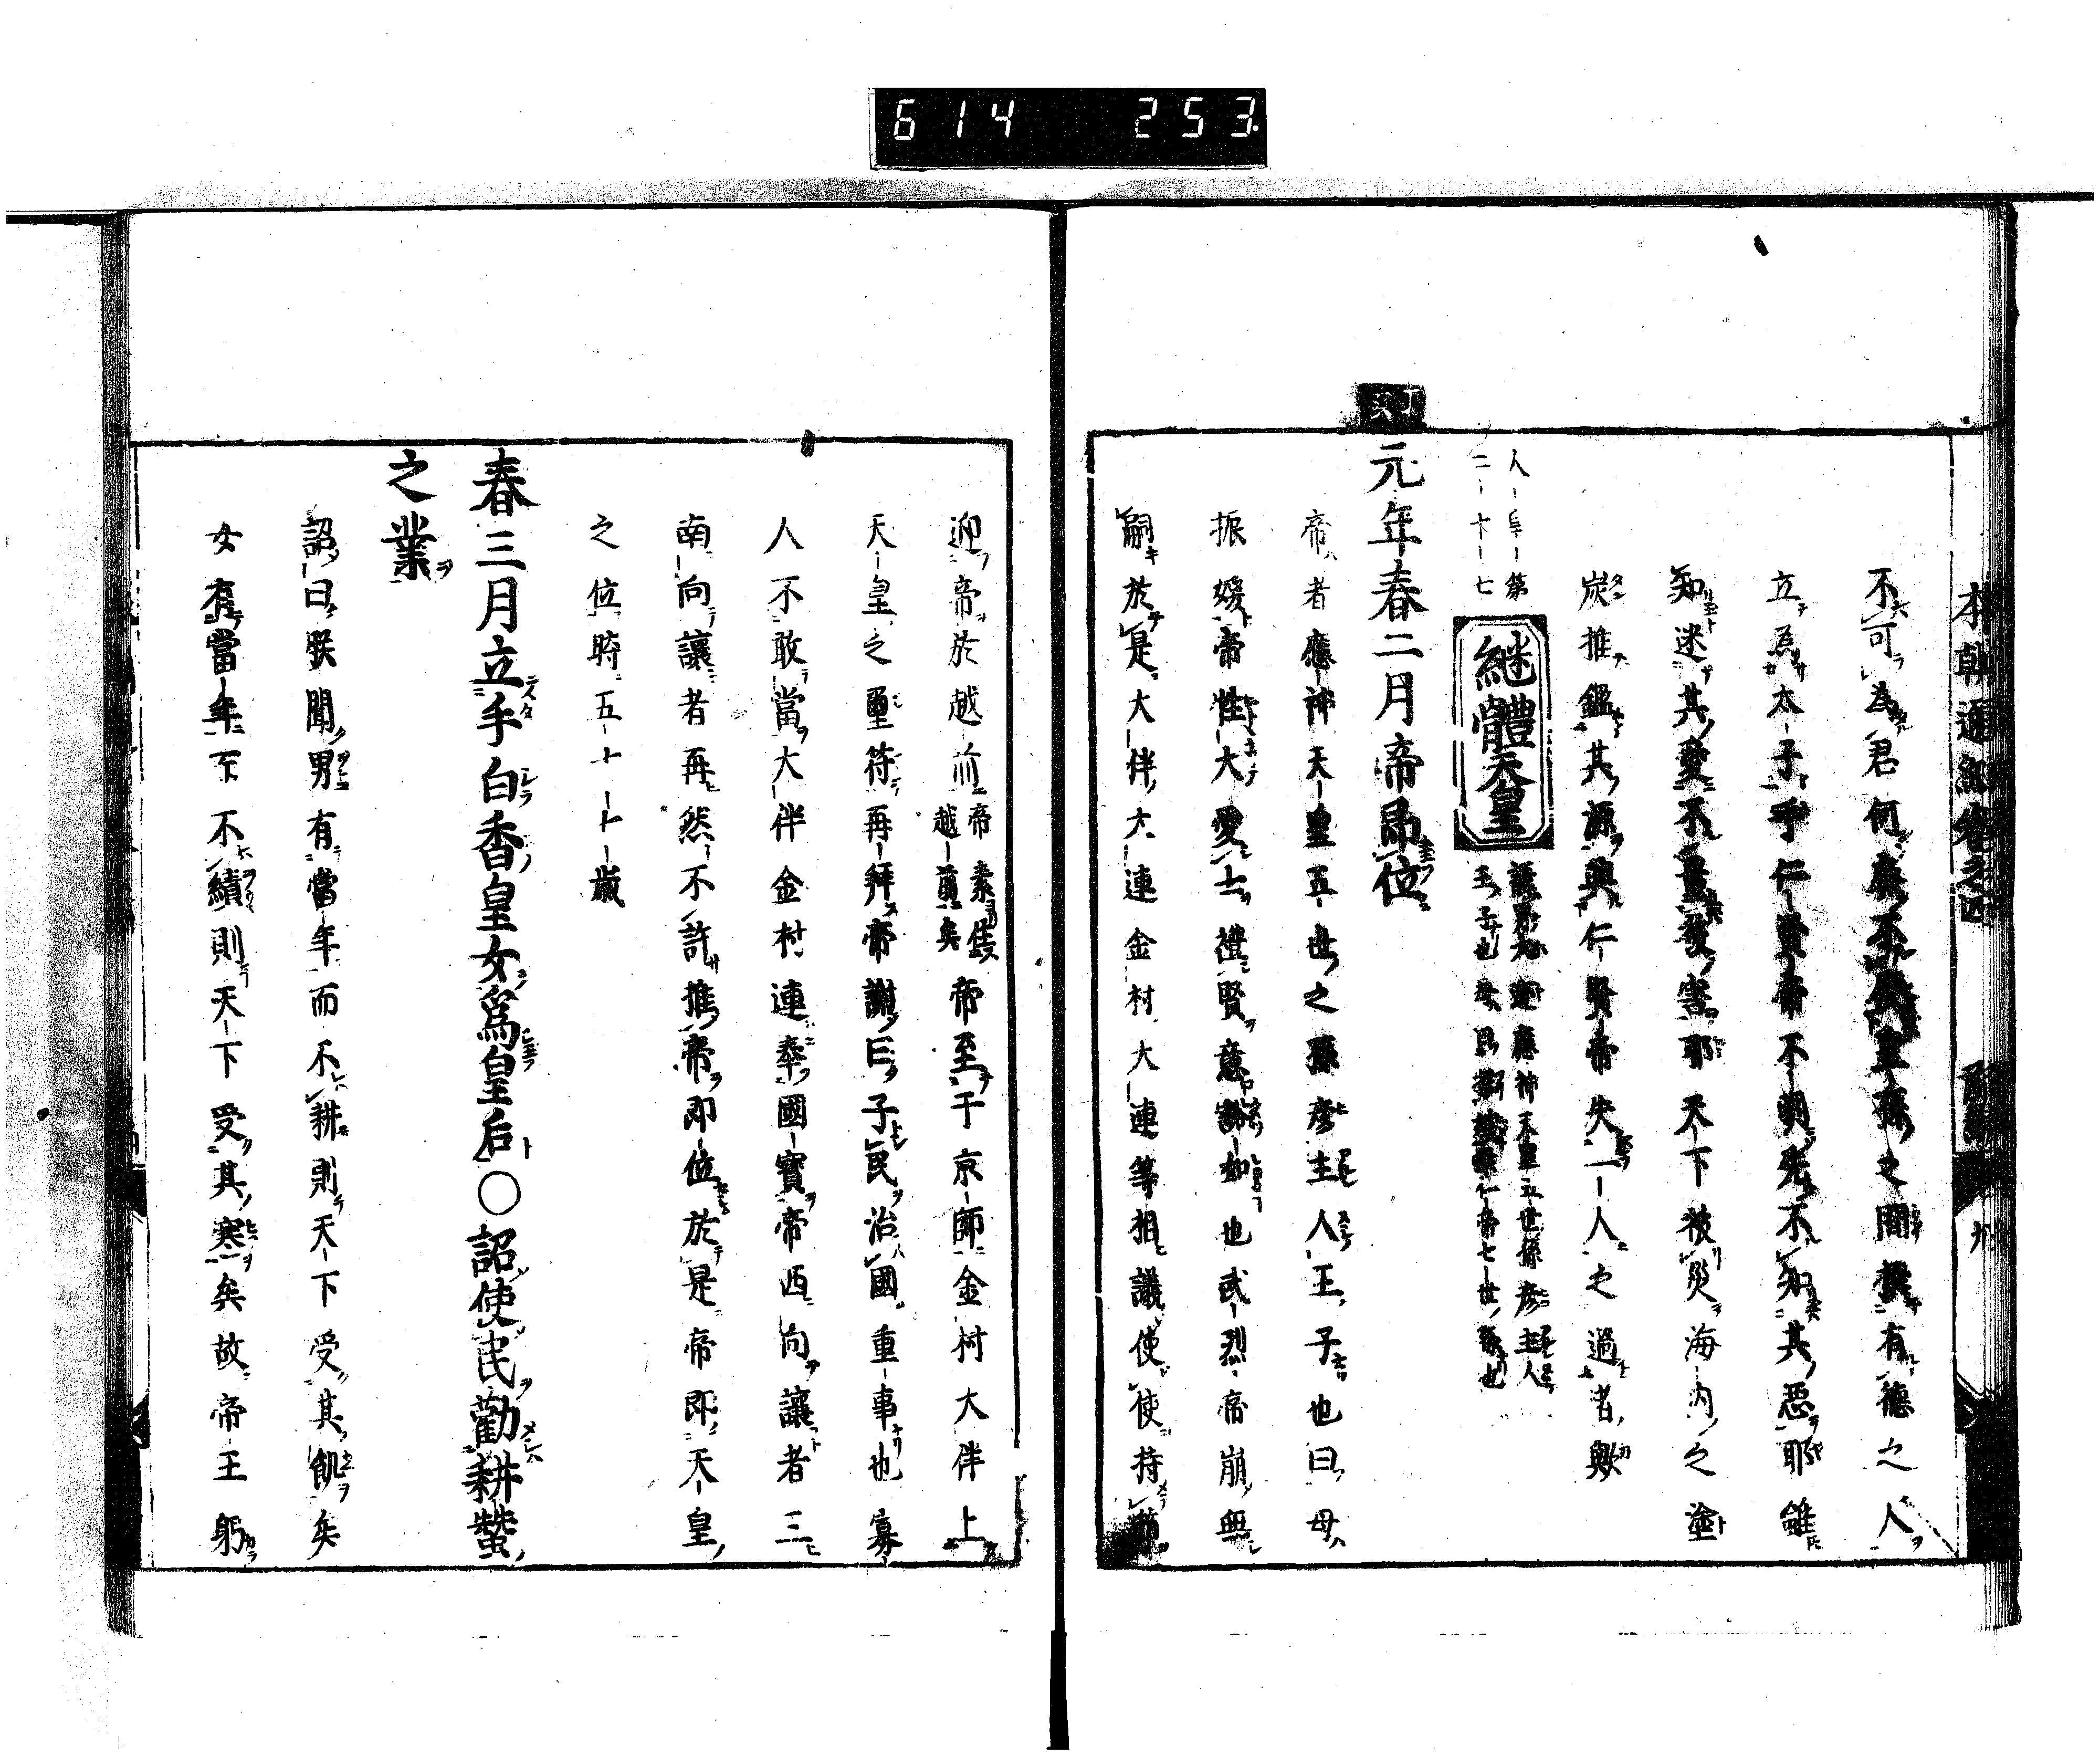 614 253
本朝通紀卷之四 前編 九
不可為君何處不無王孫之間撰有德之人
立為太子乎仁賢帝不明先不知其惡耶雖
知迷其愛不量後害耶天下被災海內之塗
炭推鑑其源與仁賢帝失一人之過者歟
人皇第二十七
繼體天皇
諱男大迹應神天皇五世孫彥主人
王子也母曰振媛垂仁帝七世孫也
元年春二月帝即位
帝者應神天皇五世之孫彥主人王子也曰母
振媛帝性大愛士禮賢意豁如也武烈帝崩無
嗣於是大伴大連金村大連等相議使使持節
迎帝於越前帝素隱越前矣帝至于京師金村大伴上
天皇之璽符再拜帝謝曰子民治國重事也寡
人不敢當大伴金村連奉國寶帝西向讓者三
南向讓者再然不許推帝即位於是帝即天皇
之位時五十八歲
春三月立手白香皇女為皇后○詔使民勸耕蠶
之業
詔曰朕聞男有當年而不耕則天下受其飢矣
女有當年而不績則天下受其寒矣故帝王躬